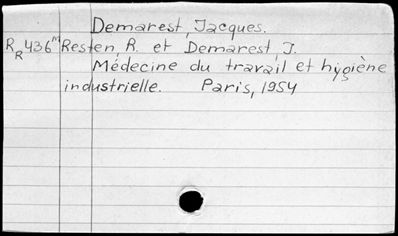 Demarest, Jacques.
R_R 436^m Resten, R. et Demarest, J.
Médecine du travail et hygiène
industrielle. Paris, 1954